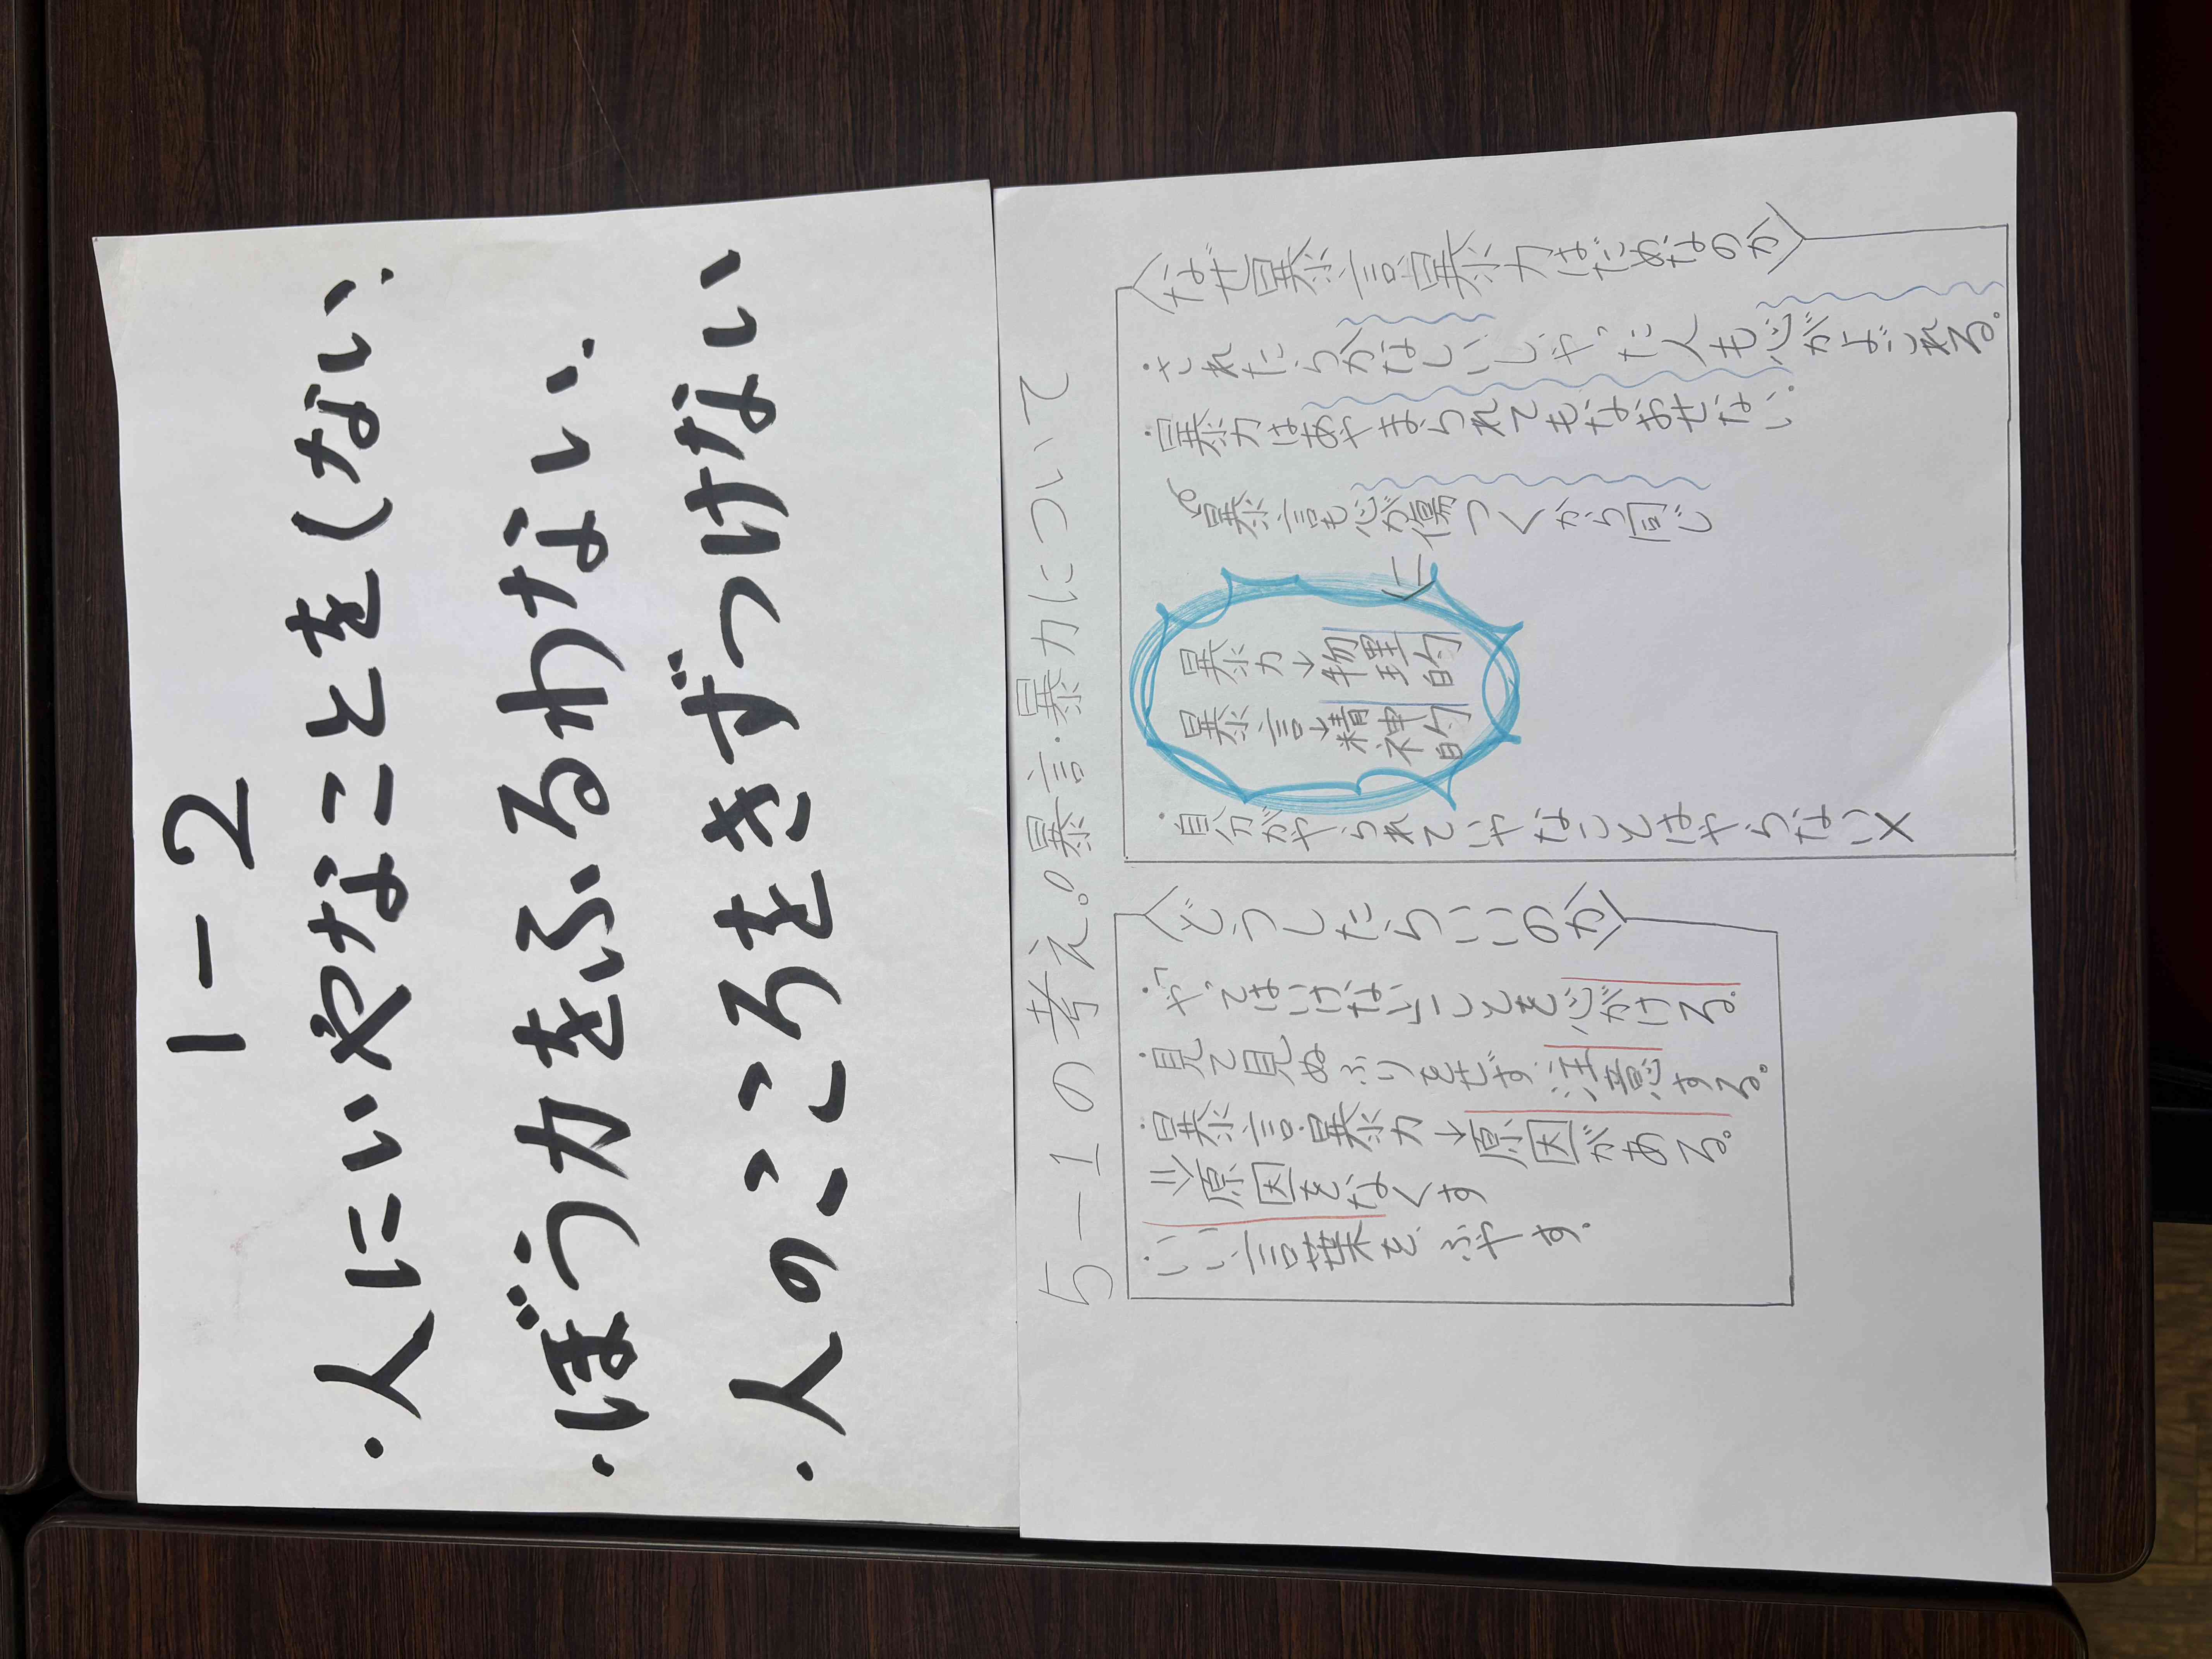 1-2
・人にいやなことをしない.
・ぼう力をふるわない.
・人のこころをきずつけない
5-1の考え。暴言・暴力について
なぜ暴言暴力はだめなのか
・されたらかなしいしやった人も心がよごれる。
・暴力はあやまられてもなおせない。
暴言も心が傷つくから同じ
暴力→物理的
暴言→精神的
・自分がやられていやなことはやらない×
どうしたらいいのか
・「やってはいけない」ことを心がける。
・見て見ぬふりをせず注意する。
・暴言暴力→原因がある。
⇒原因をなくす
・いい言葉をふやす.